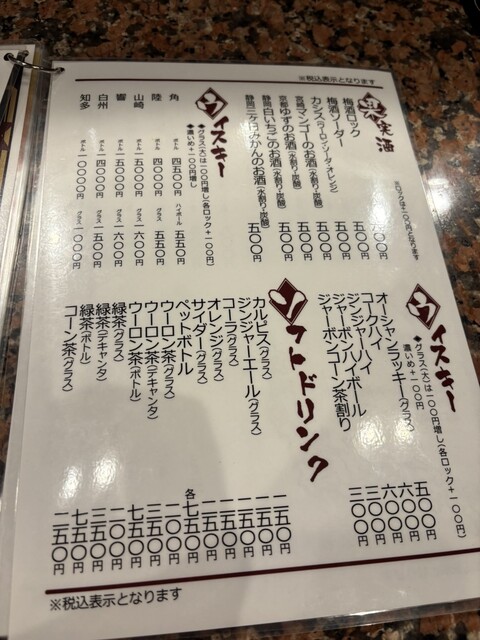 ※税込表示となります
果実酒
※ロックは+一〇〇円となります
梅酒ロック
梅酒ソーダー 五〇〇円
カシス(ウーロン・ソーダ・オレンジ) 五〇〇円
宮崎マンゴーのお酒(水割り・炭酸) 五〇〇円
京都ゆずのお酒(水割り・炭酸) 五〇〇円
静岡白いちごのお酒(水割り・炭酸) 五〇〇円
静岡三ヶ日みかんのお酒(水割り・炭酸) 五〇〇円
ウイスキー
◆グラス(大)は一〇〇円増し(各ロック+一〇〇円)
◆濃いめ+一〇〇円増し
角 ボトル 四五〇〇円 ハイボール 五五〇円
陸 ボトル 四〇〇〇円 グラス 五五〇円
山崎 ボトル 一五〇〇〇円 グラス 一六〇〇円
響 ボトル 一五〇〇〇円 グラス 一六〇〇円
白州 ボトル 一四〇〇〇円 グラス 一五〇〇円
知多 ボトル 一〇〇〇〇円 グラス 一〇〇〇円
ウイスキー
◆グラス(大)は一〇〇円増し(各ロック+一〇〇円)
濃いめ+一〇〇円
オーシャンラッキー(グラス) 五〇〇円
コークハイ 六〇〇円
ジンジャーハイ 六〇〇円
ジャーボンハイボール 三〇〇円
ジャーボンコーン茶割り 三〇〇円
ソフトドリンク
カルピス(グラス) 一五〇円
ジンジャーエール(グラス) 一五〇円
コーラ(グラス) 一五〇円
オレンジ(グラス) 一五〇円
サイダー(グラス)
ペットボトル
ウーロン茶(グラス)
ウーロン茶(デキャンタ)
ウーロン茶(ボトル)
緑茶(グラス)
緑茶(デキャンタ)
緑茶(ボトル)
コーン茶(グラス)
※税込表示となります